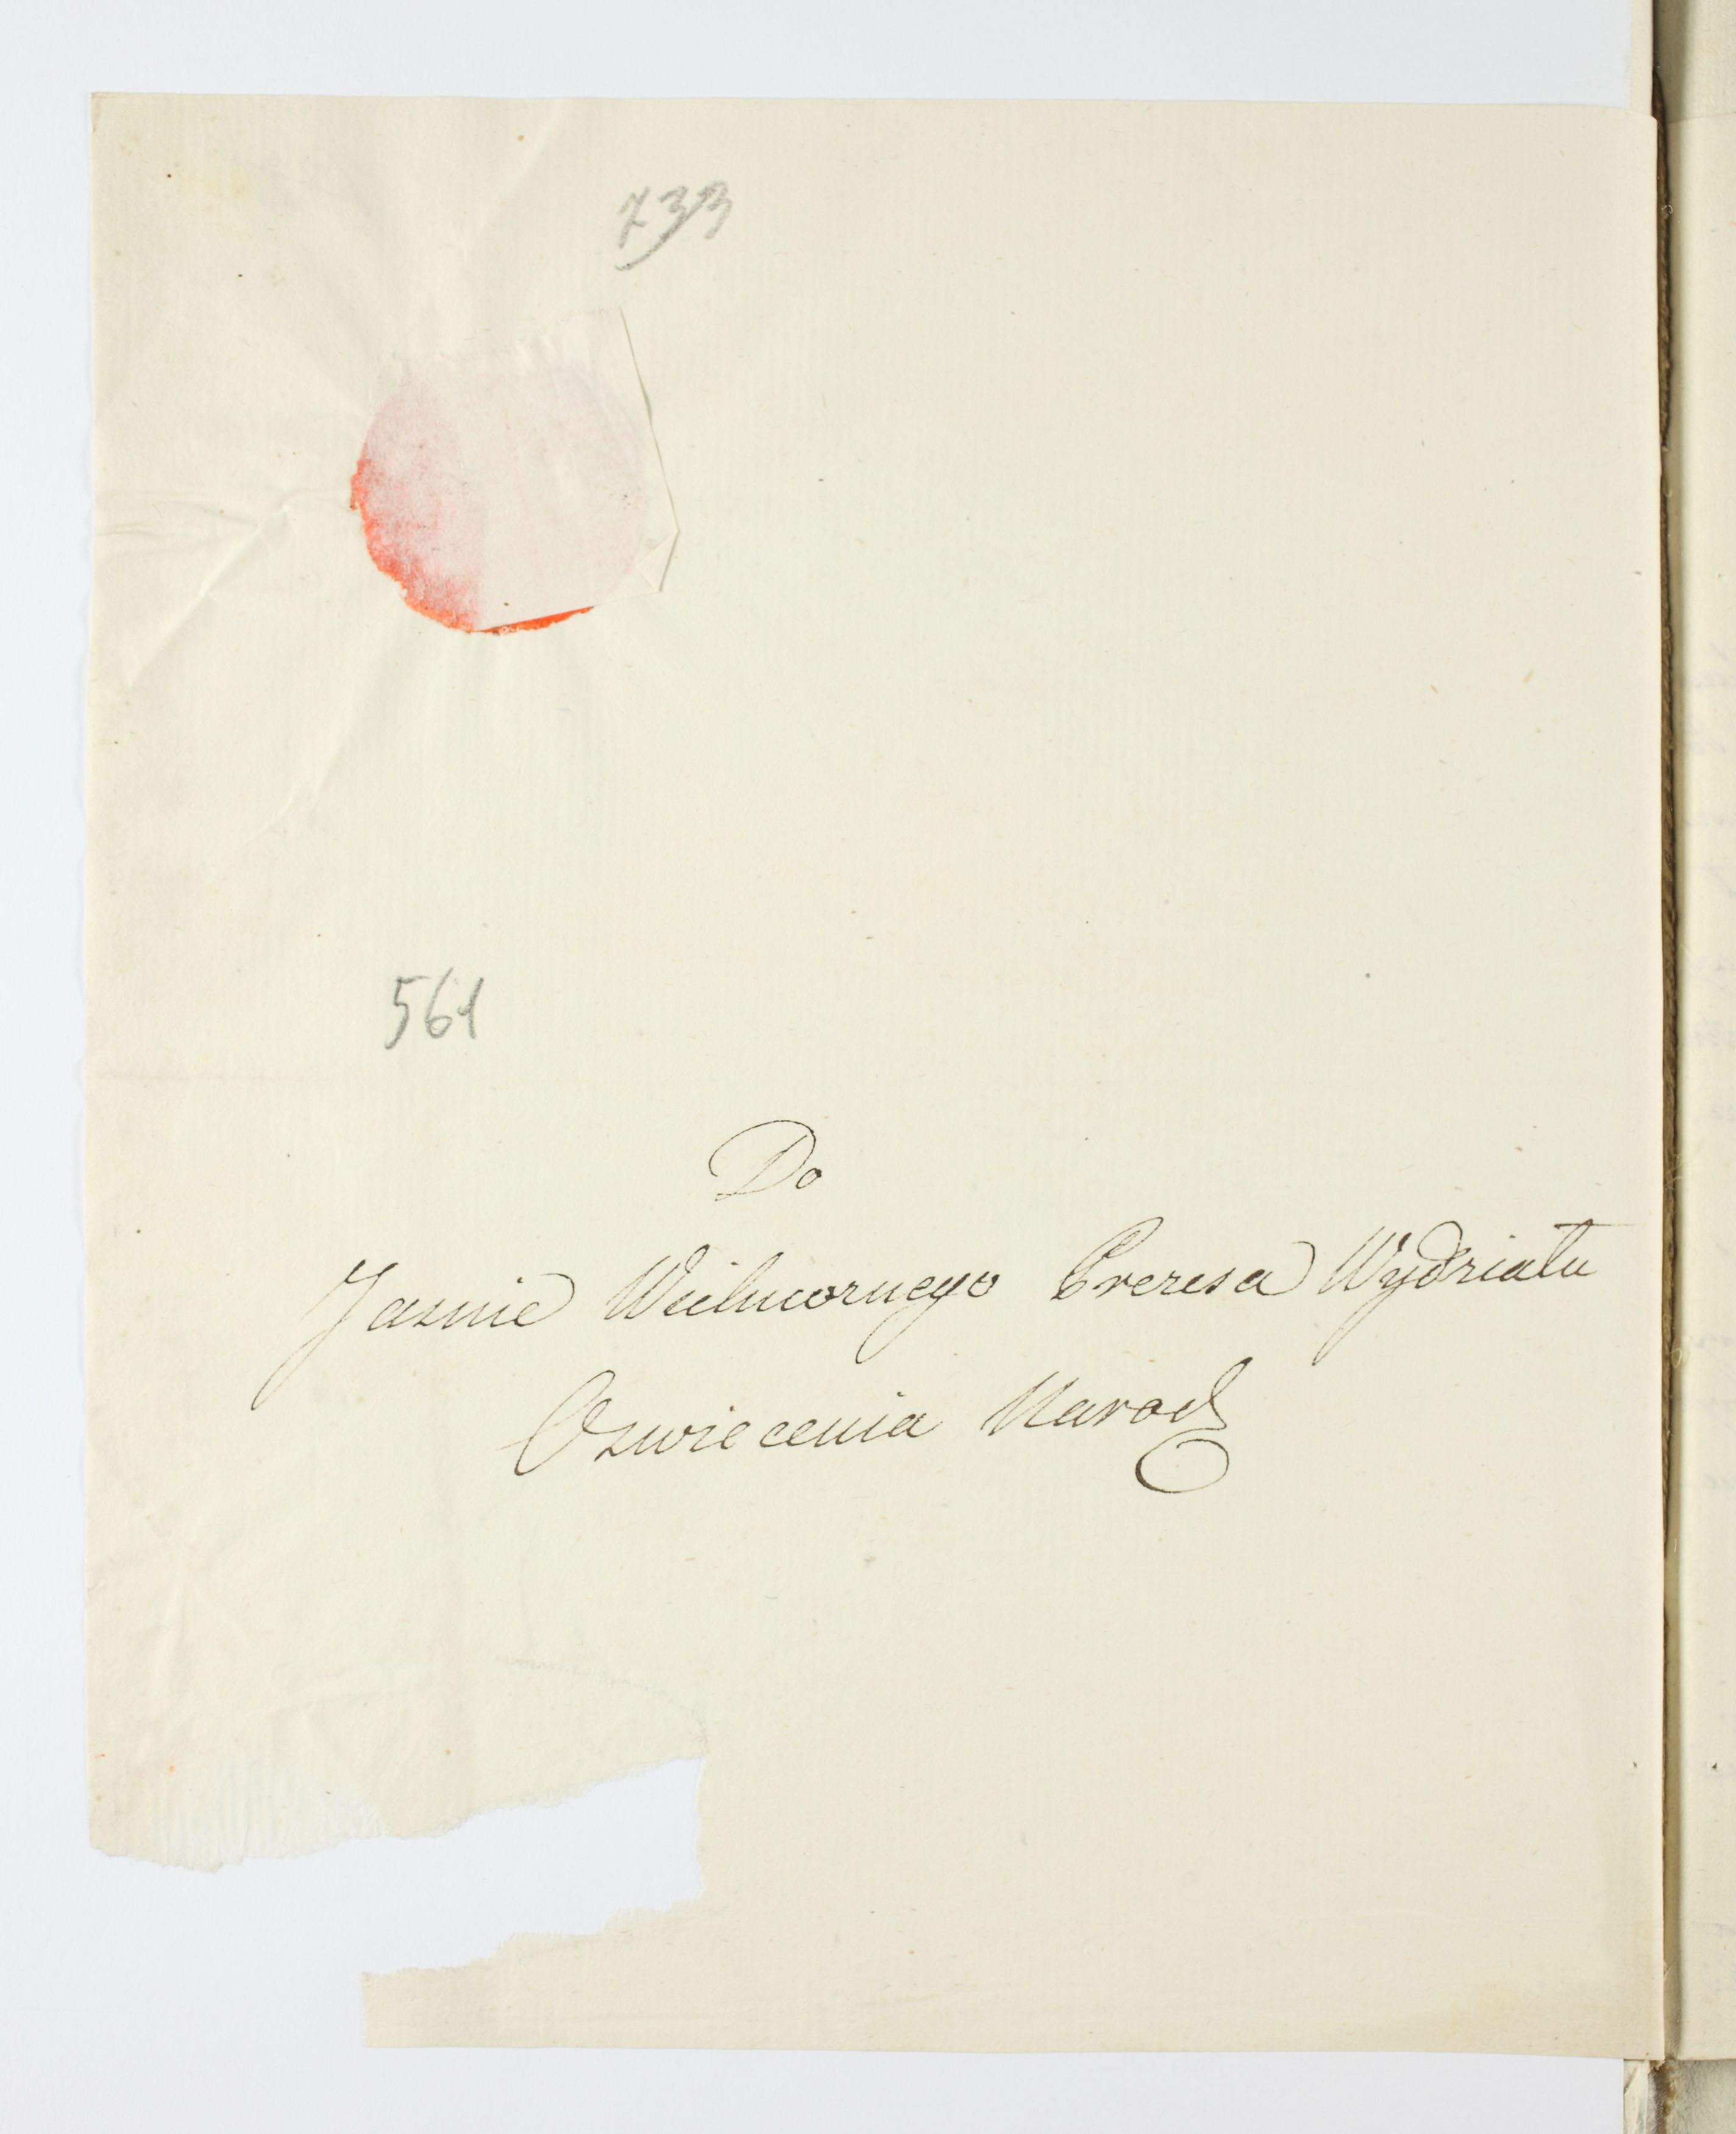 733
561
Do
Jasnie Wielmoznego Prezesa Wydziału
Oswiecenia Narod